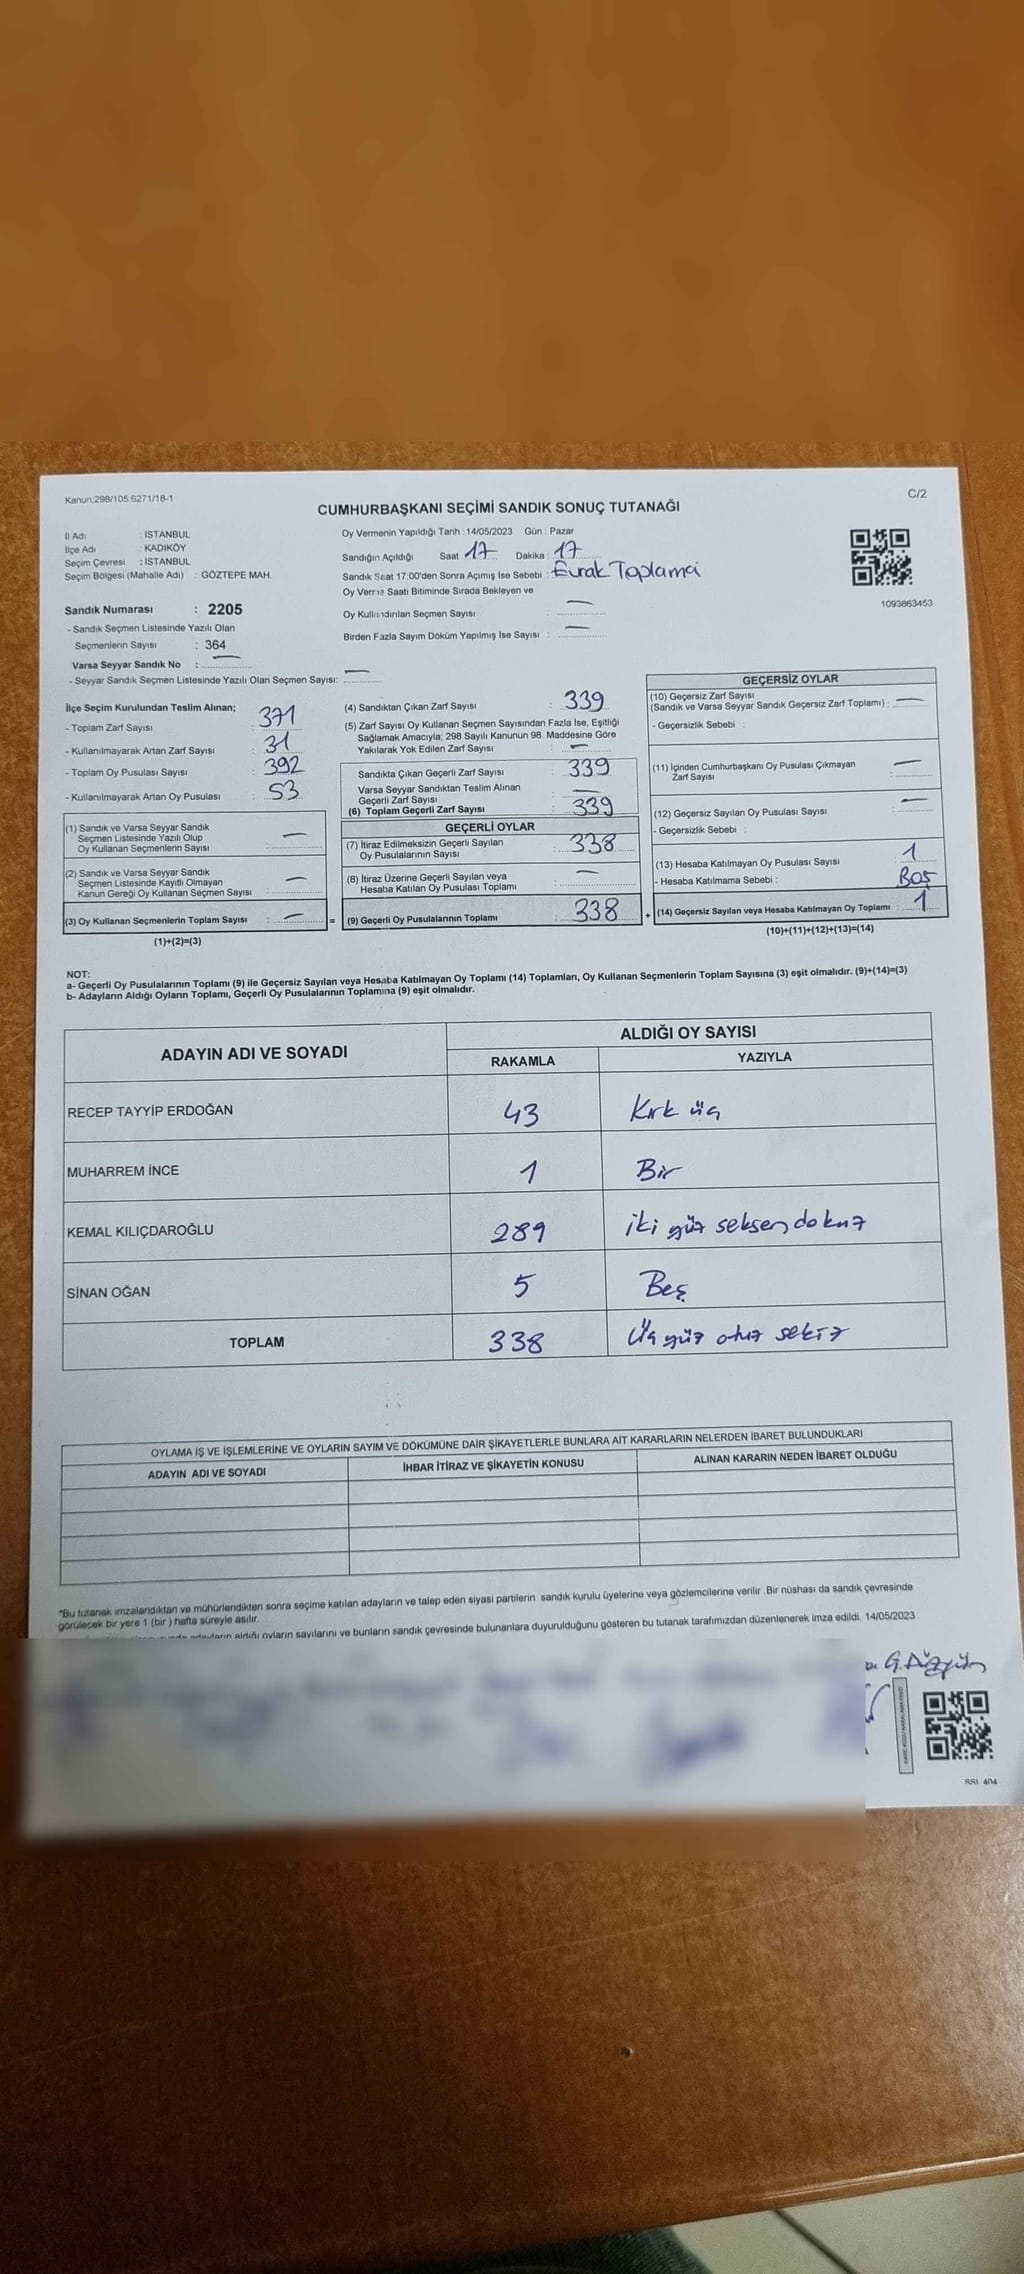 Kanun:298/105.6271/18-1
C/2
CUMHURBAŞKANI SEÇİMİ SANDIK SONUÇ TUTANAĞI
İl Adı : İSTANBUL
İlçe Adı : KADIKÖY
Seçim Çevresi : İSTANBUL
Seçim Bölgesi (Mahalle Adı) : GÖZTEPE MAH.
Oy Vermenin Yapıldığı Tarih : 14/05/2023 Gün : Pazar
Sandığın Açıldığı Saat 17 Dakika : 17
Sandık Saat 17:00'den Sonra Açımış İse Sebebi : Evrak Toplama
Oy Verme Saati Bitiminde Sırada Bekleyen ve
Oy Kullandırılan Seçmen Sayısı : —
Birden Fazla Sayım Döküm Yapılmış İse Sayısı : —
1093863453
Sandık Numarası : 2205
- Sandık Seçmen Listesinde Yazılı Olan
Seçmenlerin Sayısı : 364
Varsa Seyyar Sandık No : —
- Seyyar Sandık Seçmen Listesinde Yazılı Olan Seçmen Sayısı: —
İlçe Seçim Kurulundan Teslim Alınan;
- Toplam Zarf Sayısı : 371
- Kullanılmayarak Artan Zarf Sayısı : 31
- Toplam Oy Pusulası Sayısı : 392
- Kullanılmayarak Artan Oy Pusulası : 53
(1) Sandık ve Varsa Seyyar Sandık
Seçmen Listesinde Yazılı Olup
Oy Kullanan Seçmenlerin Sayısı : —
(2) Sandık ve Varsa Seyyar Sandık
Seçmen Listesinde Kayıtlı Olmayan
Kanun Gereği Oy Kullanan Seçmen Sayısı : —
(3) Oy Kullanan Seçmenlerin Toplam Sayısı : — =
(1)+(2)=(3)
(4) Sandıktan Çıkan Zarf Sayısı : 339
(5) Zarf Sayısı Oy Kullanan Seçmen Sayısından Fazla İse, Eşitliği
Sağlamak Amacıyla; 298 Sayılı Kanunun 98. Maddesine Göre
Yakılarak Yok Edilen Zarf Sayısı : —
Sandıkta Çıkan Geçerli Zarf Sayısı : 339
Varsa Seyyar Sandıktan Teslim Alınan
Geçerli Zarf Sayısı : —
(6) Toplam Geçerli Zarf Sayısı : 339
GEÇERLİ OYLAR
(7) İtiraz Edilmeksizin Geçerli Sayılan
Oy Pusulalarının Sayısı : 338
(8) İtiraz Üzerine Geçerli Sayılan veya
Hesaba Katılan Oy Pusulası Toplamı : —
(9) Geçerli Oy Pusulalarının Toplamı : 338 +
GEÇERSİZ OYLAR
(10) Geçersiz Zarf Sayısı
(Sandık ve Varsa Seyyar Sandık Geçersiz Zarf Toplamı) : —
- Geçersizlik Sebebi :
(11) İçinden Cumhurbaşkanı Oy Pusulası Çıkmayan
Zarf Sayısı : —
(12) Geçersiz Sayılan Oy Pusulası Sayısı : —
- Geçersizlik Sebebi :
(13) Hesaba Katılmayan Oy Pusulası Sayısı : 1
- Hesaba Katılmama Sebebi : Boş
(14) Geçersiz Sayılan veya Hesaba Katılmayan Oy Toplamı : 1
(10)+(11)+(12)+(13)=(14)
NOT:
a- Geçerli Oy Pusulalarının Toplamı (9) ile Geçersiz Sayılan veya Hesaba Katılmayan Oy Toplamı (14) Toplamları, Oy Kullanan Seçmenlerin Toplam Sayısına (3) eşit olmalıdır. (9)+(14)=(3)
b- Adayların Aldığı Oyların Toplamı, Geçerli Oy Pusulalarının Toplamına (9) eşit olmalıdır.
ADAYIN ADI VE SOYADI
ALDIĞI OY SAYISI
RAKAMLA YAZIYLA
RECEP TAYYİP ERDOĞAN 43 Kırk üç
MUHARREM İNCE 1 Bir
KEMAL KILIÇDAROĞLU 289 iki yüz seksen dokuz
SİNAN OĞAN 5 Beş
TOPLAM 338 Üç yüz otuz sekiz
OYLAMA İŞ VE İŞLEMLERİNE VE OYLARIN SAYIM VE DÖKÜMÜNE DAİR ŞİKAYETLERLE BUNLARA AİT KARARLARIN NELERDEN İBARET BULUNDUKLARI
ADAYIN ADI VE SOYADI İHBAR İTİRAZ VE ŞİKAYETİN KONUSU ALINAN KARARIN NEDEN İBARET OLDUĞU
*Bu tutanak imzalandıktan ve mühürlendikten sonra seçime katılan adayların ve talep eden siyasi partilerin sandık kurulu üyelerine veya gözlemcilerine verilir .Bir nüshası da sandık çevresinde
görülecek bir yere 1 (bir ) hafta süreyle asılır.
adayların aldığı oyların sayılarını ve bunların sandık çevresinde bulunanlara duyurulduğunu gösteren bu tutanak tarafımızdan düzenlenerek imza edildi. 14/05/2023
SSI_404